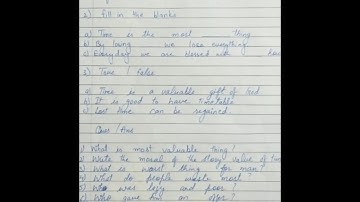 1) Fill in the blanks
a) Time is the most ______ thing
b) By losing ____ we lose everything.
c) Everyday we are served with ____
2) True / false
a) Time is a valuable gift of God.
b) It is good to have timetable
c) Lost time can be regained.
Ques / Ans
1) What is most valuable thing?
2) Write the moral of the story value of time
3) What is worst thing for man?
4) What do people waste most?
5) Who was lazy and poor?
6) Who gave him an offer?